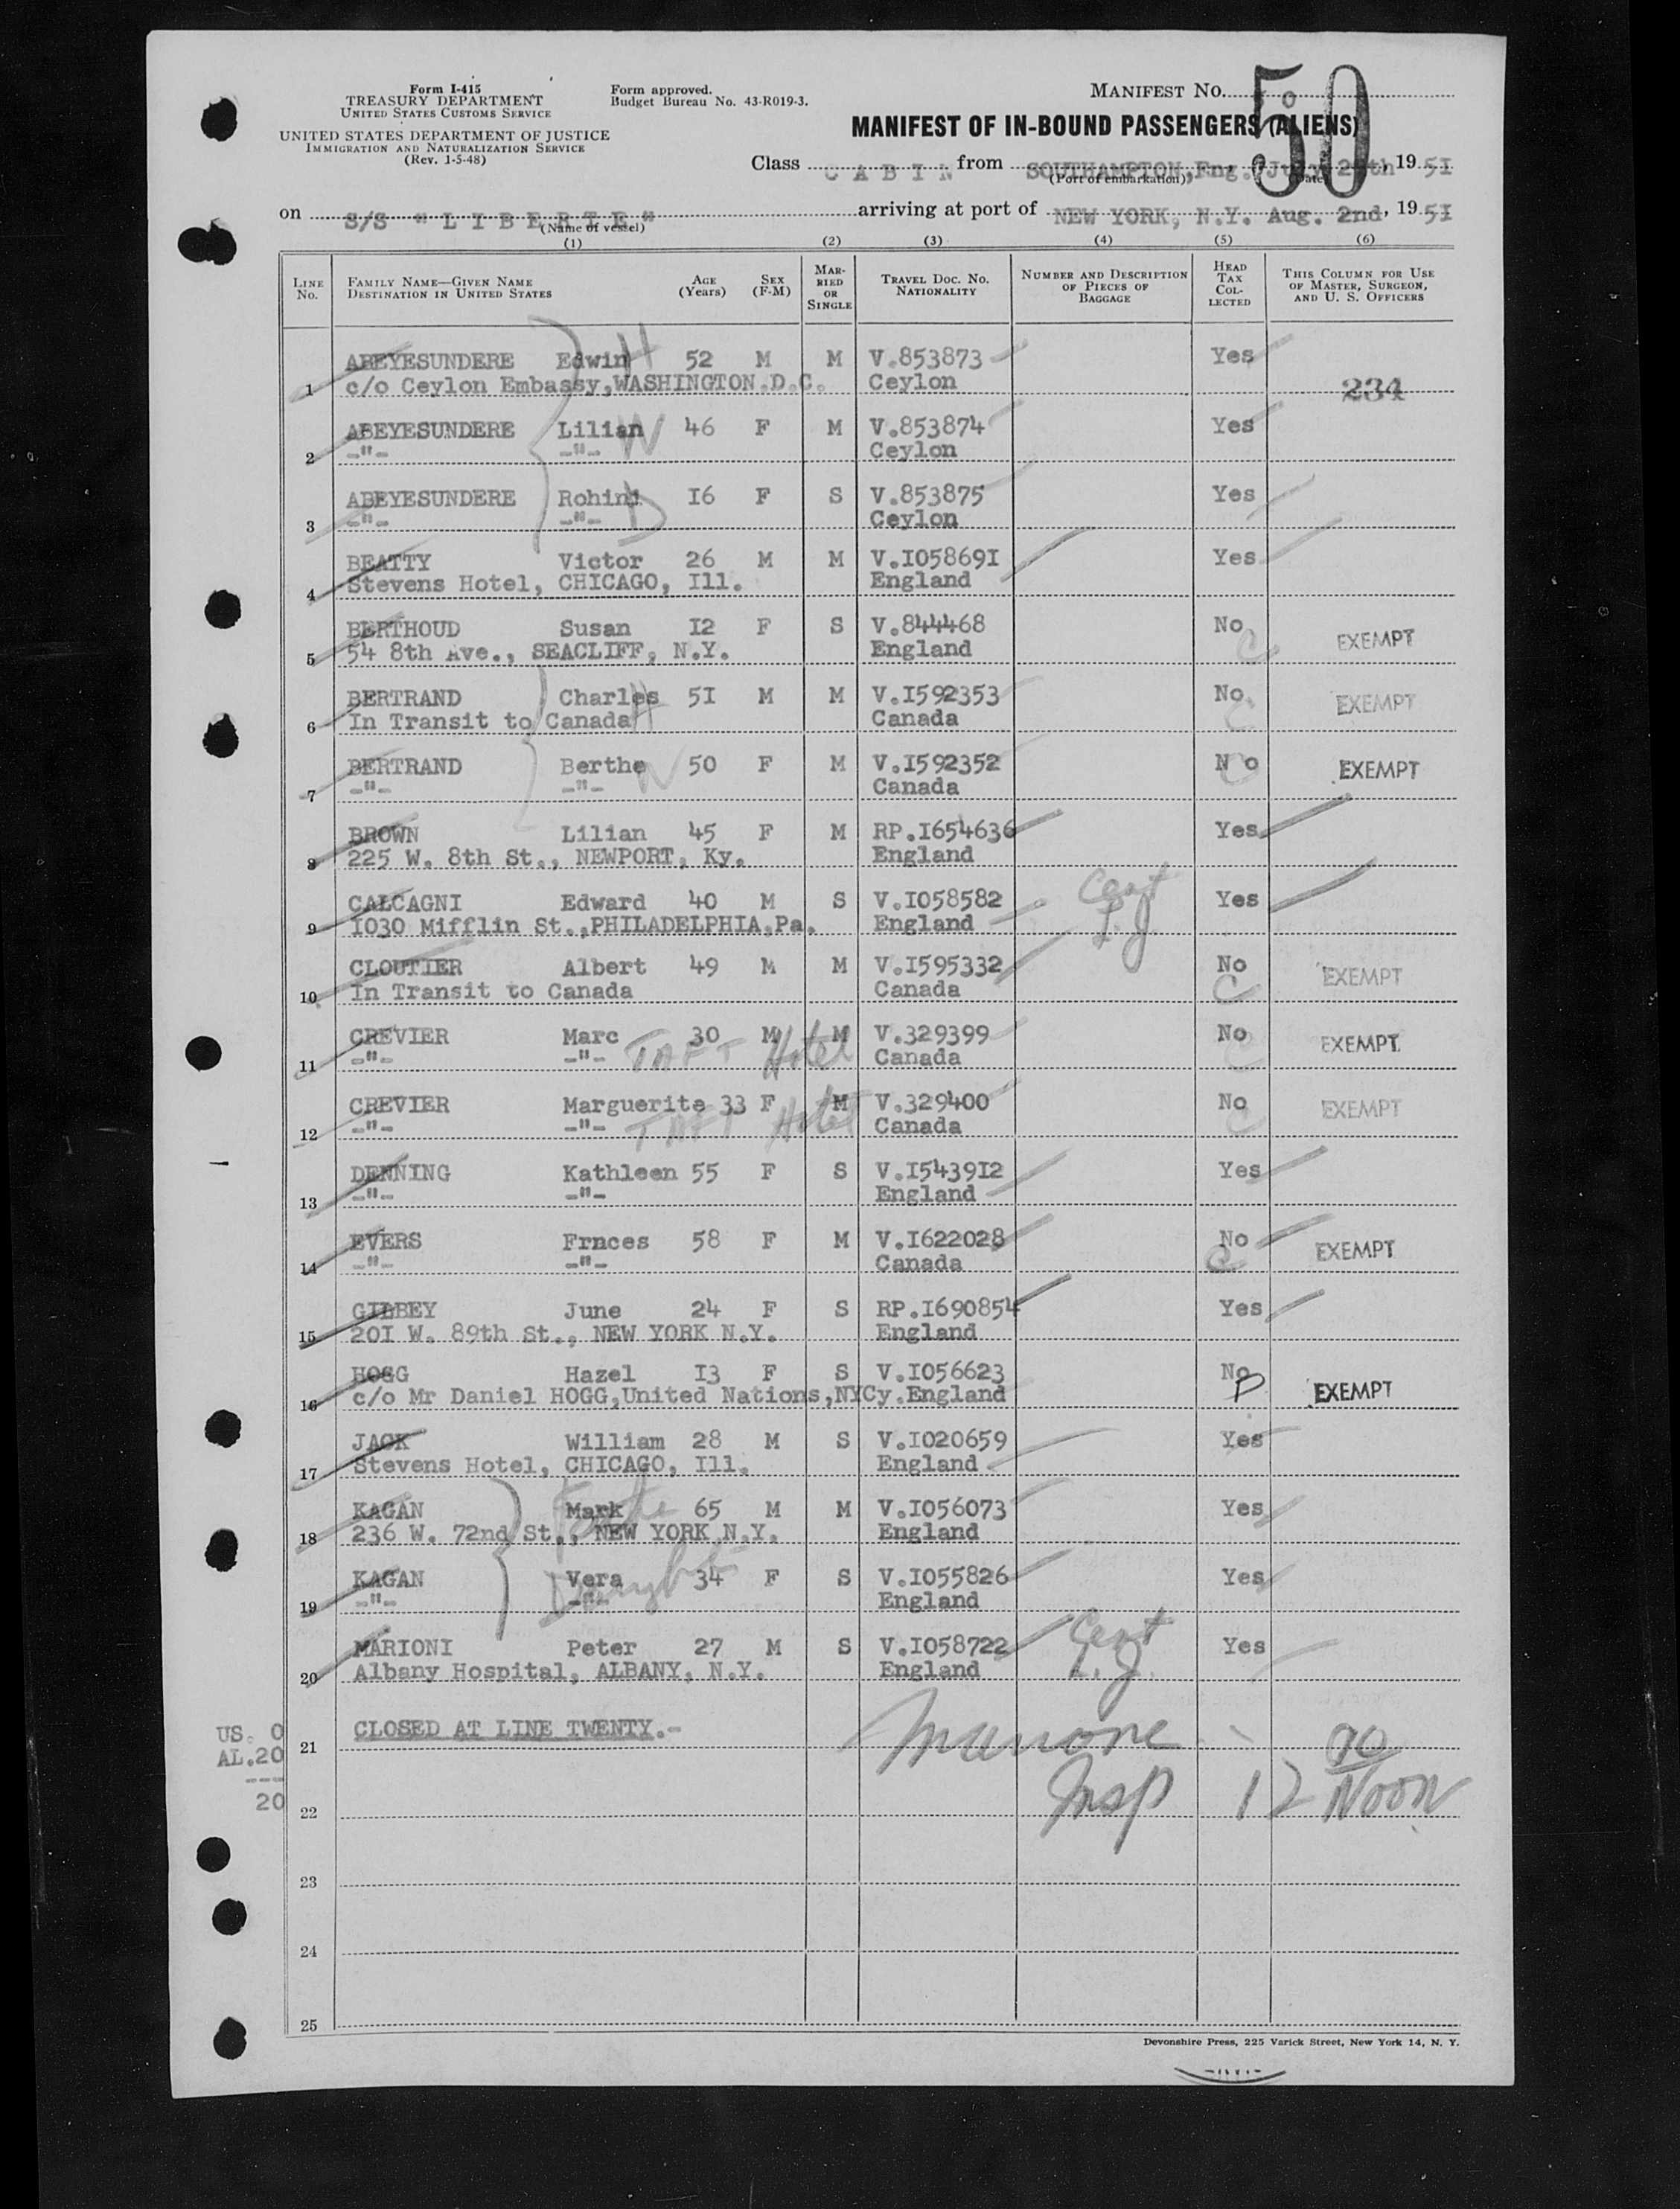 Form I-415
TREASURY DEPARTMENT
UNITED STATES CUSTOMS SERVICE
UNITED STATES DEPARTMENT OF JUSTICE
IMMIGRATION AND NATURALIZATION SERVICE
(Rev. 1-5-48)
Form approved.
Budget Bureau No. 43-R019-3.
MANIFEST NO. 50
MANIFEST OF IN-BOUND PASSENGERS (ALIENS)
Class C A B I N from SOUTHAMPTON, Eng., July th, 1951
(Port of embarkation) (Date)
on S/S "L I B E R T E" arriving at port of NEW YORK, N.Y. Aug. 2nd, 1951
(Name of vessel)
(1) (2) (3) (4) (5) (6)
LINE NO. FAMILY NAME—GIVEN NAME DESTINATION IN UNITED STATES AGE (Years) SEX (F-M) MARRIED OR SINGLE TRAVEL DOC. NO. NATIONALITY NUMBER AND DESCRIPTION OF PIECES OF BAGGAGE HEAD TAX COLLECTED THIS COLUMN FOR USE OF MASTER, SURGEON, AND U. S. OFFICERS
ABEYESUNDERE Edwin H 52 M M V.853873 Yes
1 c/o Ceylon Embassy,WASHINGTON.D.C. Ceylon 234
ABEYESUNDERE Lilian W 46 F M V.853874 Yes
2 -"- -"- Ceylon
ABEYESUNDERE Rohini D I6 F S V.853875 Yes
3 -"- -"- Ceylon
BEATTY Victor 26 M M V.I058691 Yes
4 Stevens Hotel, CHICAGO, Ill. England
BERTHOUD Susan I2 F S V.844468 No C EXEMPT
5 54 8th Ave., SEACLIFF, N.Y. England
BERTRAND Charles H 5I M M V.I592353 No C EXEMPT
6 In Transit to Canada Canada
BERTRAND Berthe W 50 F M V.I592352 No C EXEMPT
7 -"- -"- Canada
BROWN Lilian 45 F M RP.I654636 Yes
8 225 W. 8th St., NEWPORT, Ky. England
CALCAGNI Edward 40 M S V.I058582 Yes
9 I030 Mifflin St.,PHILADELPHIA,Pa. England
CLOUTIER Albert 49 M M V.I595332 No C EXEMPT
10 In Transit to Canada Canada
CREVIER Marc 30 M M V.329399 No C EXEMPT
11 -"- -"- TAFT Hotel Canada
CREVIER Marguerite 33 F M V.329400 No C EXEMPT
12 -"- -"- TAFT Hotel Canada
DENNING Kathleen 55 F S V.I5439I2 Yes
13 -"- -"- England
EVERS Frnces 58 F M V.I622028 No C EXEMPT
14 -"- -"- Canada
GILBEY June 24 F S RP.I690854 Yes
15 20I W. 89th St., NEW YORK N.Y. England
HOGG Hazel I3 F S V.I056623 No P EXEMPT
16 c/o Mr Daniel HOGG,United Nations,NYCy.England
JACK William 28 M S V.I020659 Yes
17 Stevens Hotel, CHICAGO, Ill. England
KAGAN Mark 65 M M V.I056073 Yes
18 236 W. 72nd St., NEW YORK N.Y. England
KAGAN Vera 34 F S V.I055826 Yes
19 -"- -"- England
MARIONI Peter 27 M S V.I058722 Yes
20 Albany Hospital, ALBANY, N.Y. England
US. 0
AL.20
---
20
21 CLOSED AT LINE TWENTY.-
22 Insp 12 Noon
23
24
25
Devonshire Press, 225 Varick Street, New York 14, N. Y.